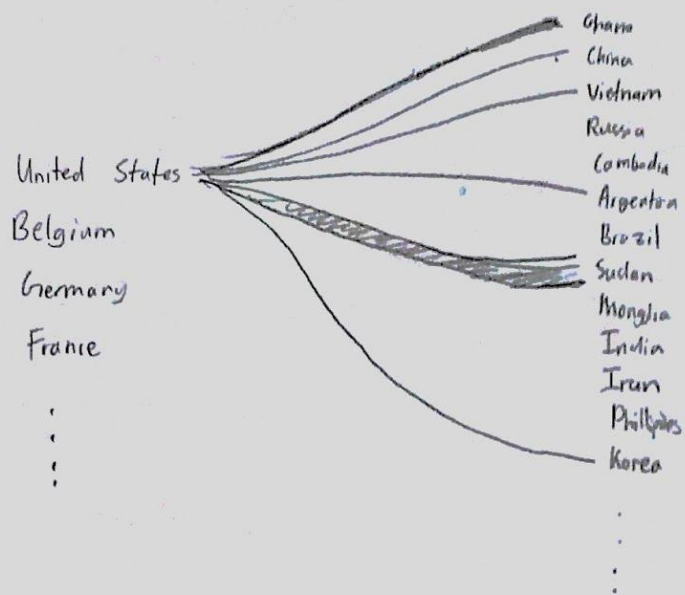 United States
Belgium
Germany
France
Ghana
China
Vietnam
Russia
Cambodia
Argentina
Brazil
Sudan
Monglia
India
Iran
Phillipines
Korea